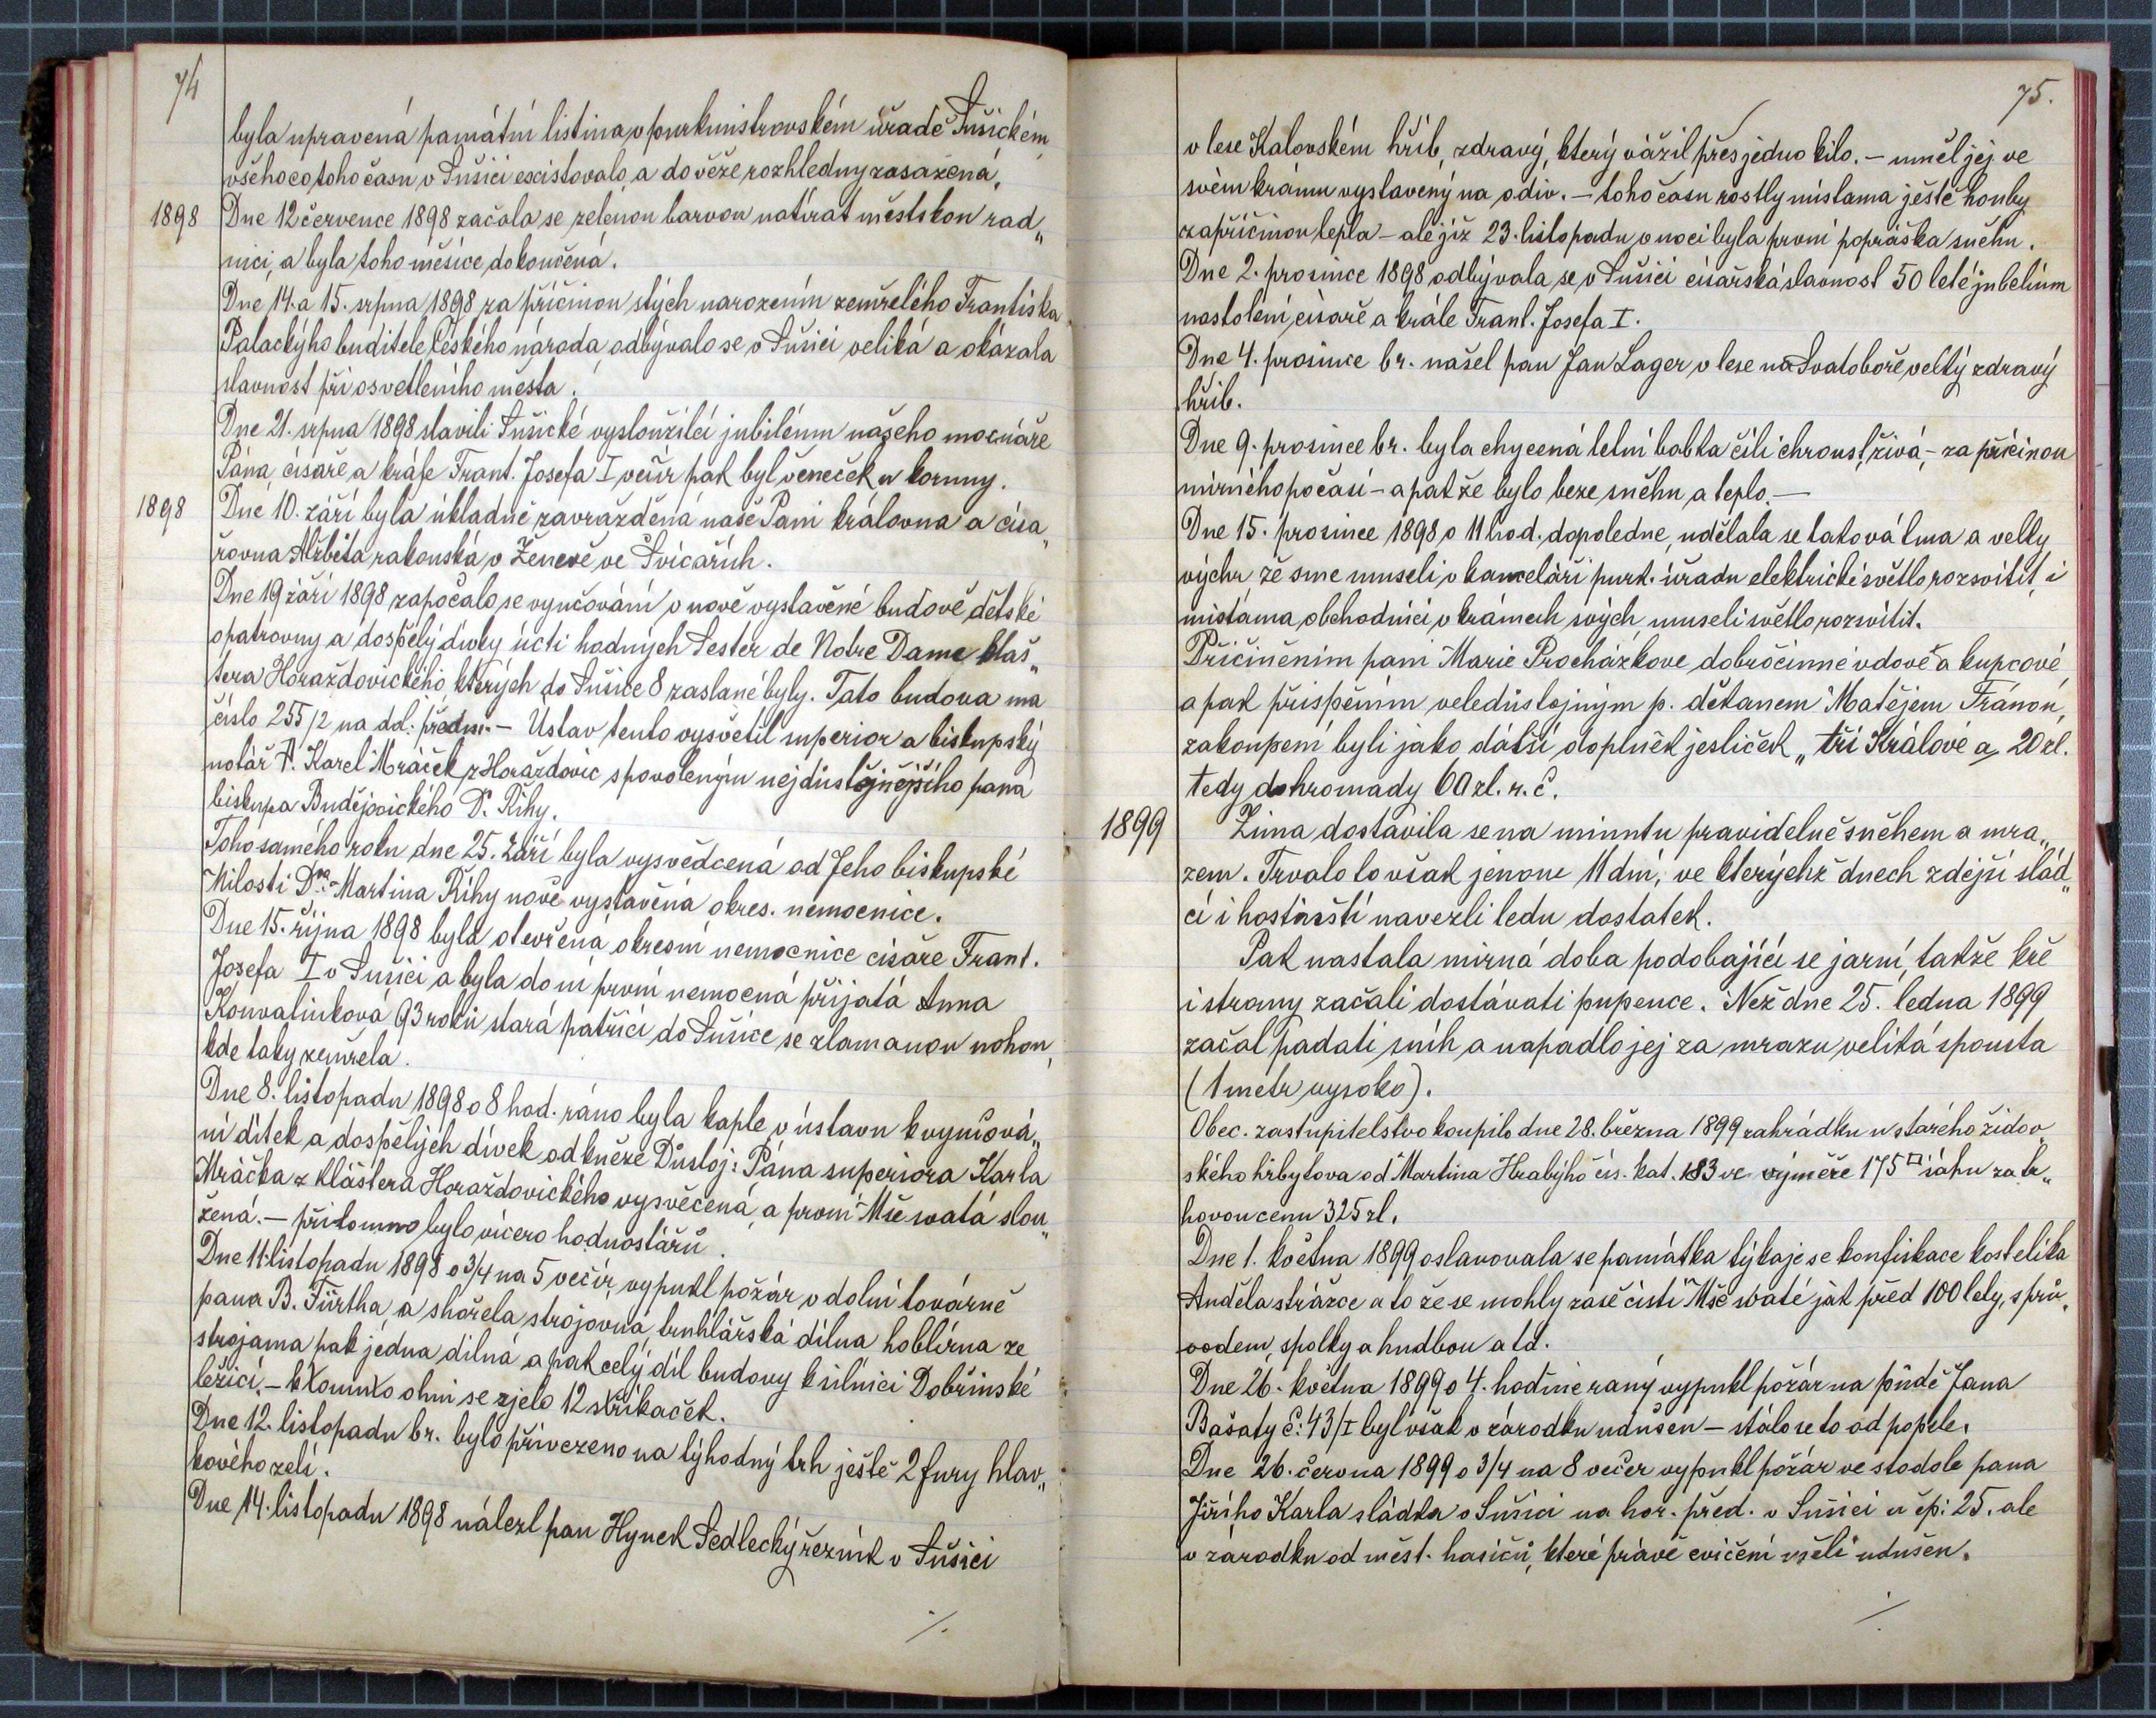 74
byla upravená památní listina v purkmistrovském úřadě Sušickém
všeho co toho času v Sušici escistovalo, a do věže rozhledny zasazená.
1898 Dne 12 července 1898 začala se zelenou barvou natírat městskou rad„
nici, a byla toho měsíce dokončená.
Dne 14. a 15. srpna 1898 za příčinou stých narozením zemřelého Františka
Palackýho buditele Českého národa odbývalo se v Sušici veliká a okázala
slavnost při osvetleního města.
Dne 21. srpna 1898 slavili Sušické vysloužilci jubiléum našeho mocnáře
Pána, císaře a krále Frant. Josefa I večír pak byl věneček u koruny.
1898 Dne 10. září byla úkladně zavražděná naše Paní královna a císa„
řovna Alžběta rakouská v Ženevě ve Švicařích.
Dne 19 září 1898 započalo se vyučování v nově vystavěné budově dětské
opatrovny a dospělý dívky úcti hodných Sester de Notre Dame kláš„
tera Horažďovického, kterých do Sušice 8 zaslané byly. Tato budova má
číslo 255/2 na dol. předm. – Ústav tento vysvětil superior a biskupský
notář P. Karel Mráček z Horažďovic s povoleným nejdůstojnějšího pana
biskupa Budějovického Dr. Říhy.
Toho samého roku dne 25. Září byla vysvědcená od Jeho biskupské
Milosti Dra. Martina Říhy nově vystavěná okres. nemocnice.
Dne 15. října 1898 byla otevřená okresní nemocnice císaře Frant.
Josefa I v Sušici a byla do ní první nemocná přijatá Anna
Konvalinková 93 roků stará patřící do Sušice se zlamanou nohou,
kde taky zemřela.
Dne 8. listopadu 1898 o 8 hod. ráno byla kaple v ústavu k vyučová„
ní dítek a dospělých dívek od kněze Důstoj: Pána superiora Karla
Mráčka z kláštera Horažďovického vysvěcená, a první Mše svatá slou„
žená. – přítomno bylo vícero hodnostářů.
Dne 11. listopadu 1898 o 3/4 na 5 večír, vypukl požár v dolní továrně
pana B. Fürtha, a shořela strojovna, truhlářská dílna hoblírna ze
strojama pak jedna dílná a pak celý díl budovy k silnici Dobřinské
ležící. – k tomuto ohni se zjelo 12 stříkaček.
Dne 12. listopadu br. bylo přivezeno na týhodný trh ještě 2 fury hlav„
kového zelí.
Dne 14. listopadu 1898 nálezl pan Hynek Sedlecký řezník v Sušici
./.
75.
v lese Kalovském hřib, zdravý, který vážil přes jedno kilo. – uměl jej ve
svém krámu vystavený na odiv. – toho času rostly místama ještě houby
za příčinou tepla – ale již 23. listopadu v noci byla první popráška sněhu.
Dne 2. prosince 1898 odbývala se v Sušici císařská slavnost 50 leté jubelíum
nastolení císaře a krále Frant. Josefa I.
Dne 4. prosince br. našel pan Jan Lager v lese na Svatoboře velký zdravý
hřib.
Dne 9. prosince br. byla chycená letní babka čili chroust, živá, – za příčinou
mírného počasí – a pak že bylo beze sněhu a teplo. –
Dne 15. prosince 1898 o 11 hod. dopoledne, udělala se taková tma a velky
výchr že sme museli v kanceláři purk. úřadu elektrické světlo rozsvítit, i
místama obchodníci v krámech svých museli světlo rozsvítit.
Přičiněním paní Marie Procházkove dobročinné vdově a kupcové,
a pak přispěním veledůstojným p. děkanem Matějem Fránou,
zakoupení byli jako dátší doplněk jesliček „tří Králové a 20 zl.
tedy dohromady 60 zl. r. č.
1899 Zima dostavila se na minutu pravidelně sněhem a mra„
zem. Trvalo to však jenom 11 dní, ve kterýchž dnech zdejší slád„
cí i hostinští navezli ledu dostatek.
Pak nastala mírná doba podobající se jarní, takže kře
i stromy začali dostávati pupence. Než dne 25. ledna 1899
začal padati sníh a napadlo jej za mrazu veliká spousta
(1 metr vysoko).
Obec. zastupitelstvo koupilo dne 28. března 1899 zahrádku u starého židov„
ského hřbytova od Martina Hrabýho čís. kat. 183 ve výměře 175 □ sáhu za tr„
hovou cenu 325 zl.
Dne 1. května 1899 oslavovala se památka týkaje se konfiskace kostelíka
Anděla strážce a to že se mohly zase čísti Mše svaté ják před 100 lety, s prů„
vodem, spolky a hudbou a td.
Dne 26. května 1899 o 4. hodině raný vypukl požár na půdě Jana
Bašaty č: 43/I byl však v zárodku udušen – stálo se to od popele.
Dne 26. června 1899 o 3/4 na 8 večer vypukl požár ve stodole pana
Jiřího Karla sládka v Sušici na hor. před. v Sušici u čp: 25. ale
v zárodku od měst. hasičů, které právě cvičení měli udušen.
./.